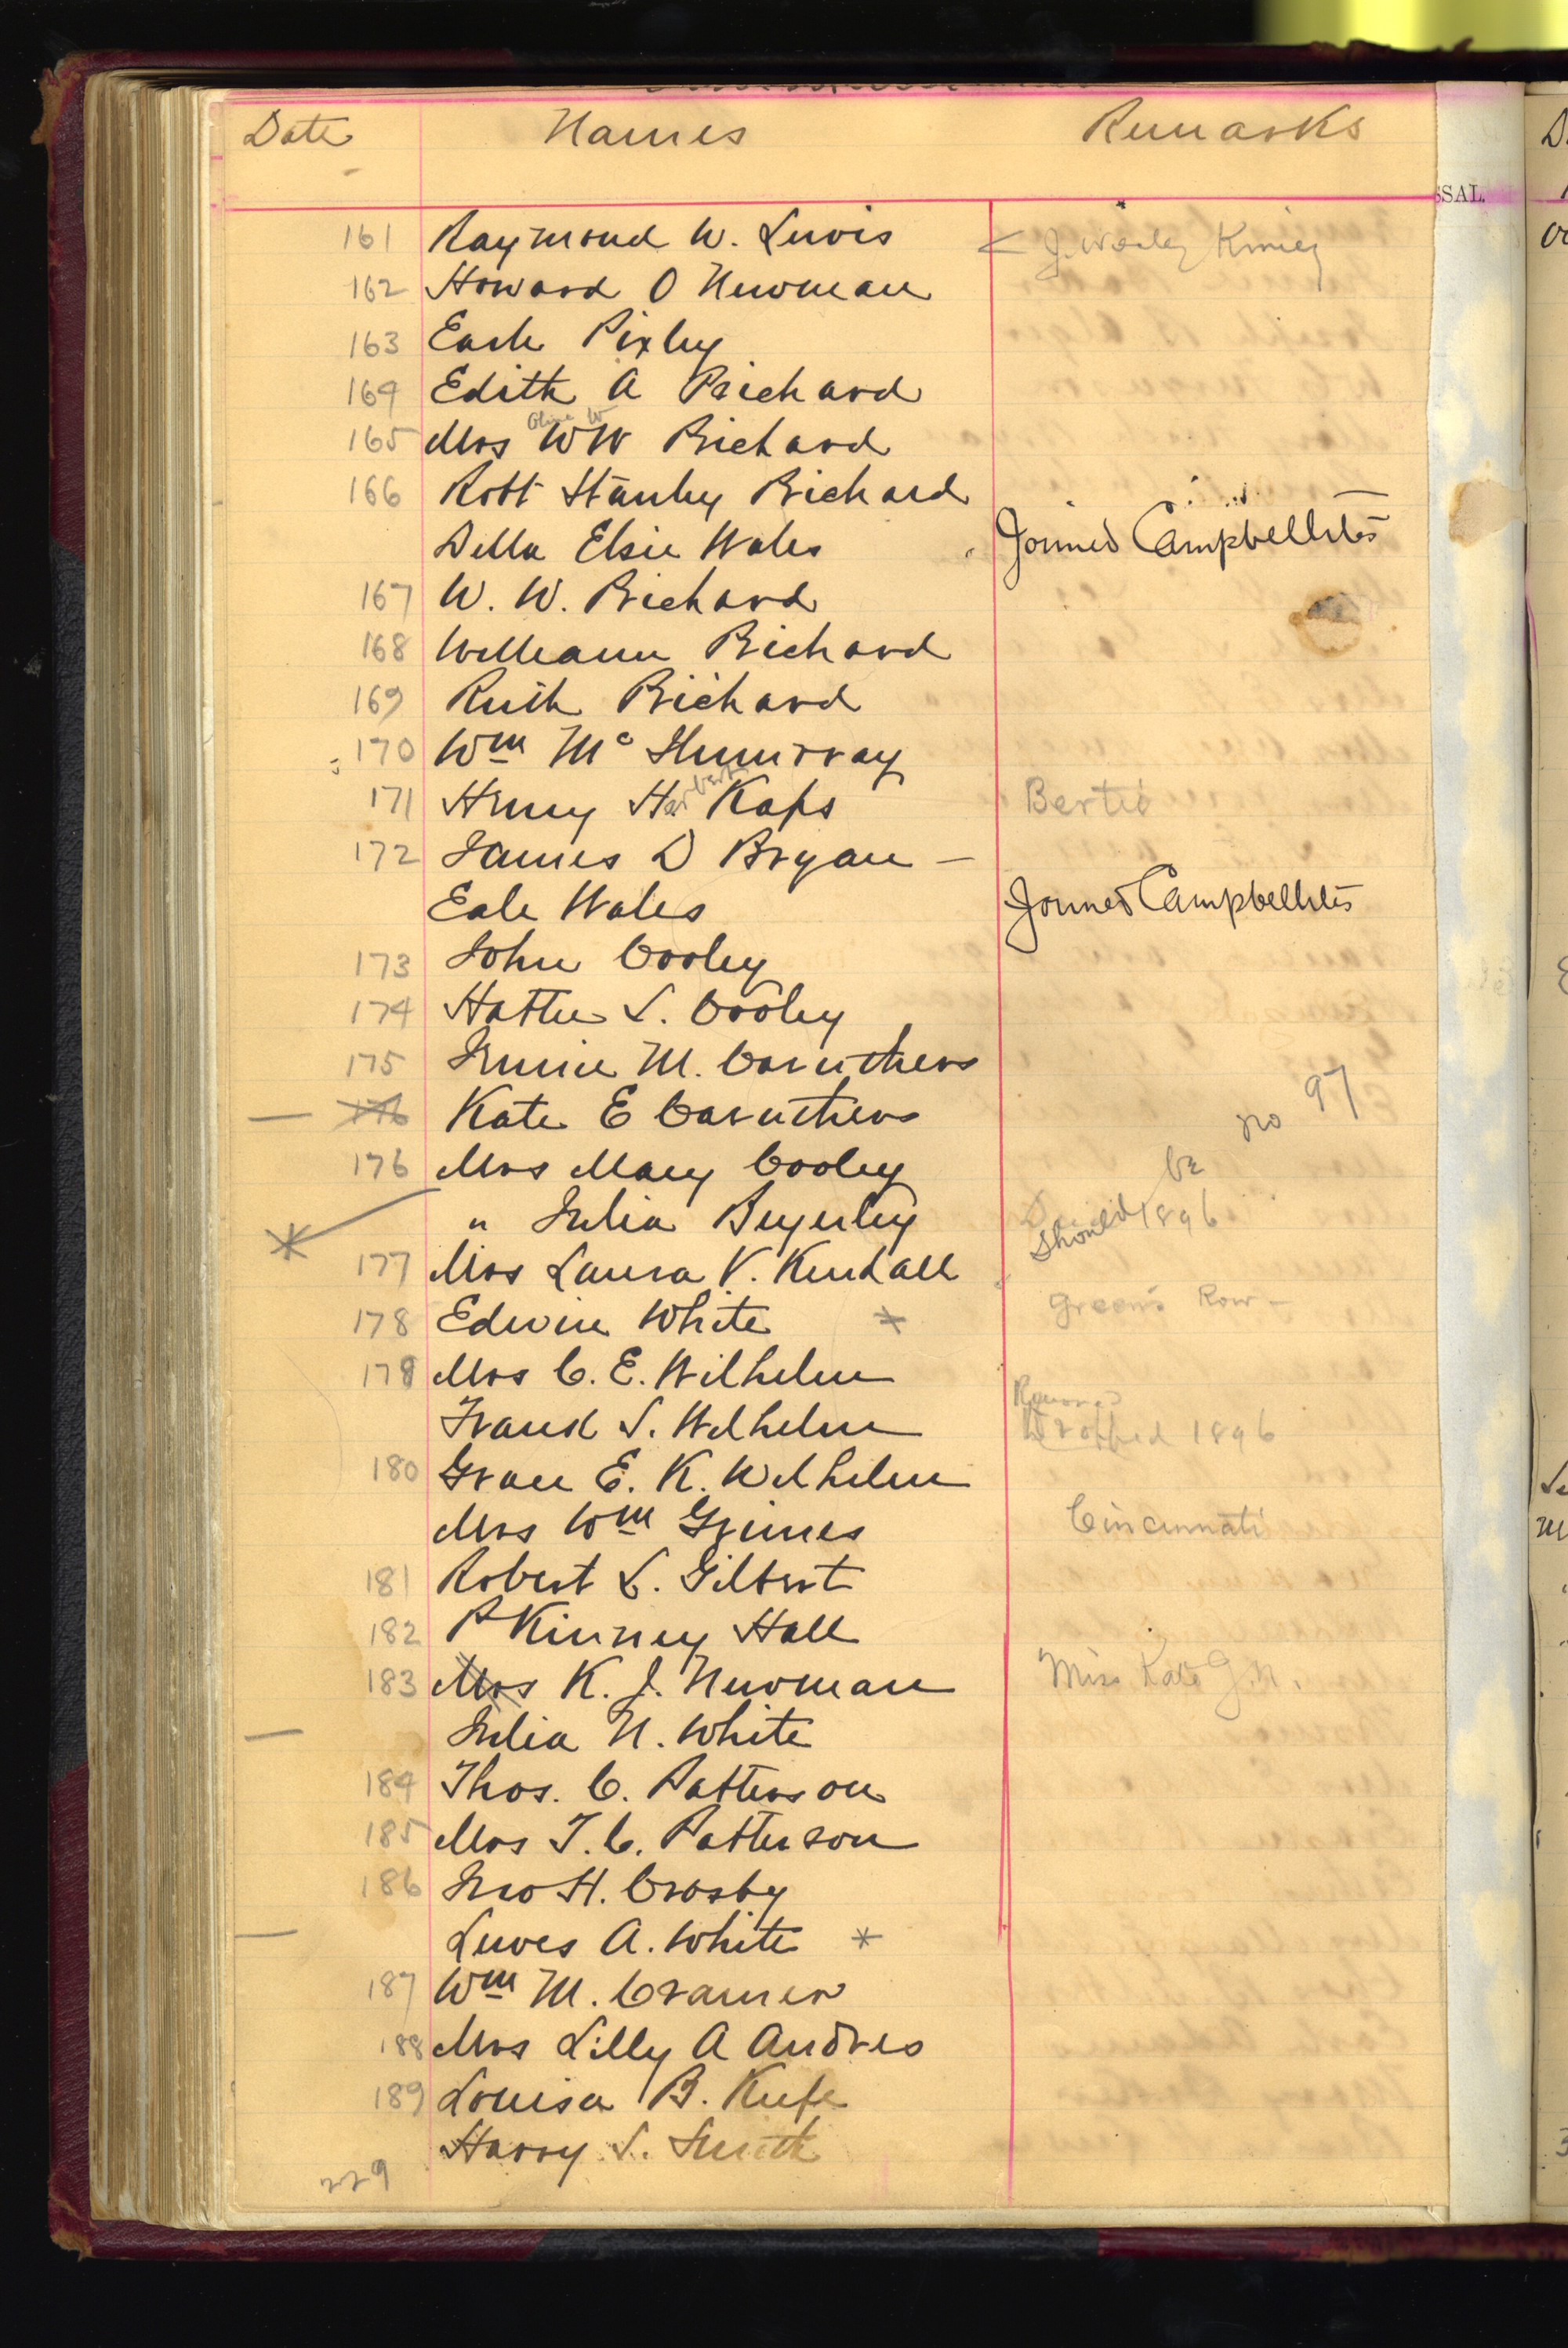 Date Names Remarks
SSAL.
161 Raymond W. Lewis J. Wesley
162 Howard O Newman
163 Earle Pixley
164 Edith A Prichard
Olive W
165 Mrs WW Prichard
166 Robt Stanley Prichard
Della Elsie Wales Joined Campbellites
167 W. W. Prichard
168 William Prichard
169 Ruth Prichard
170 Wm Mc
171 Henry Herbert Kaps Bertie
172 James D Bryan —
Earle Wales Joined Campbellites
173 John Cooley
174 Hattie L. Cooley
175 Jennie M. Caruthers
— 176 Kate E Caruthers
176 Mrs Mary Cooley Should be no 97
* " Julia Byerley 1896
177 Mrs Laura V. Kendall
178 Edwin White * Green's Row -
179 Mrs C. E. Wilhelm
Frank S. Wilhelm Removed Dropped 1896
180 Grace E. K. Wilhelm
Mrs Wm Grimes Cincinnati
181 Robert L. Gilbert
182 P Kinney Hall
183 Mrs K. J. Newman Miss Kate J. N.
— Julia N. White
184 Thos. C. Patterson
185 Mrs T. C. Patterson
186 Jno H. Crosby
— Lewes A. White *
187 Wm M. Cramer
188 Mrs Lilly A Andres
189 Louisa B. Keefe
Harry L. Smith
229